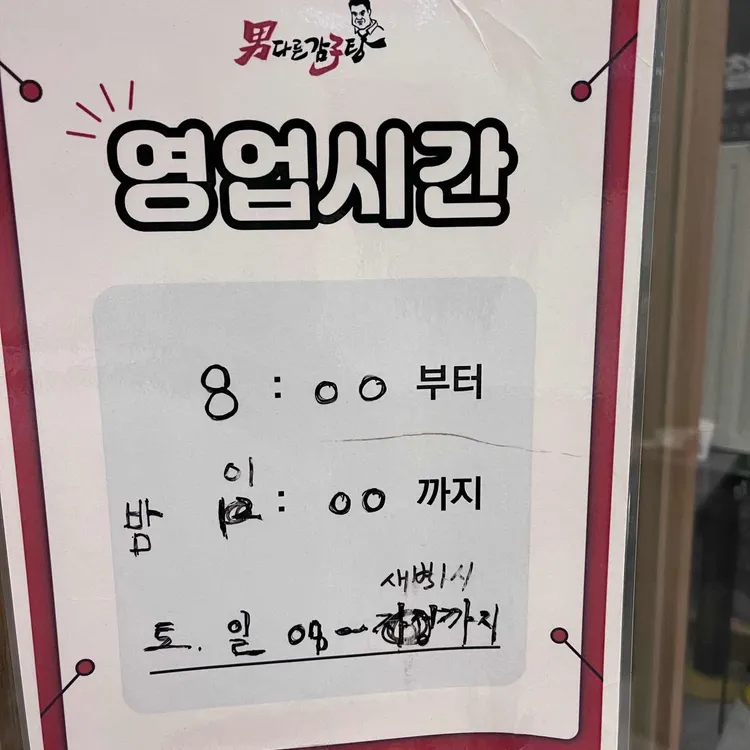 男다른감子탕
영업시간
8 : 00 부터
밤 01 : 00 까지
새벽1시
토. 일 08 ~ 까지